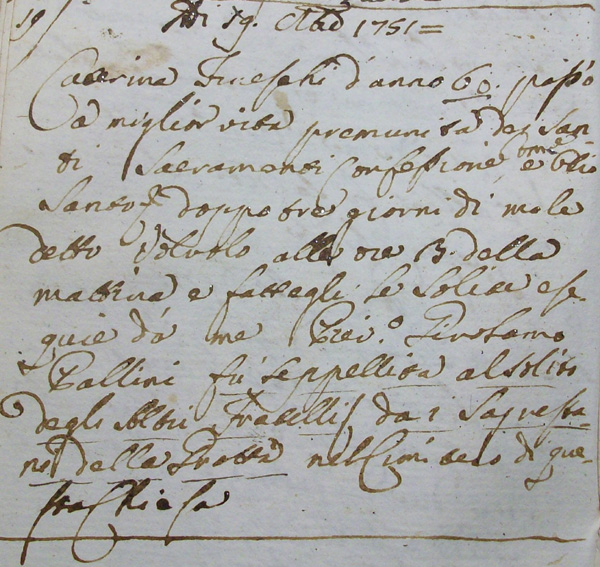 19 Adi 19. Obre 1751=
Caterina Freschi d'anno 60. passò
à miglior vita premunita dei San-
ti Sacramenti Confessione, e Olio
Santo doppo tre giorni di male
detto Volvolo alle ore 13. della
mattina e fattegli le solite ese-
quie dà me Girolamo
Ballini fù seppellita al solito
degli Altri Fratelli dai Sagresta-
ni della Grotta nel Cimitero di que-
sta Chiesa